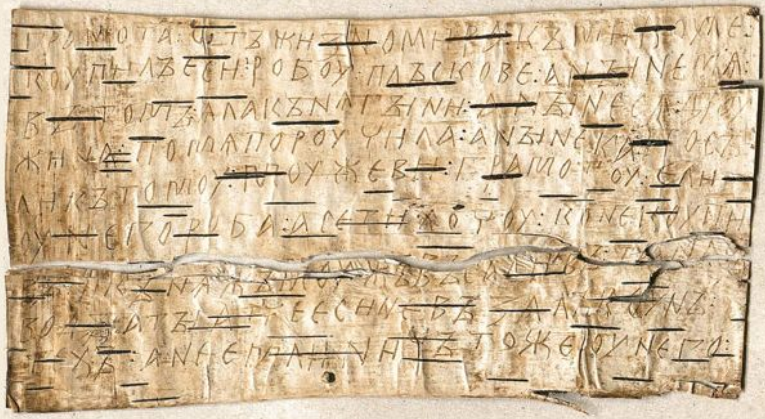 грамота : ѡтъ жизномира : къ микоуле :
коупилъ еси : робоу : плъскове : а нꙑне мѧ :
въ томъ : ѧла кънѧгꙑни : а нꙑне сѧ дроу
жина : по мѧ пороучила : а нꙑне ка : посъ
ли къ томоу : моужеви : грамотоу : е ли
оу него роба : а се ти : хочоу : коне коупи
въ : и кънѧжъ моужъ въсадивъ : та на съ
водꙑ : а тꙑ атче еси не възалъ коунъ :
техъ : а не емли : ничъто же оу него :